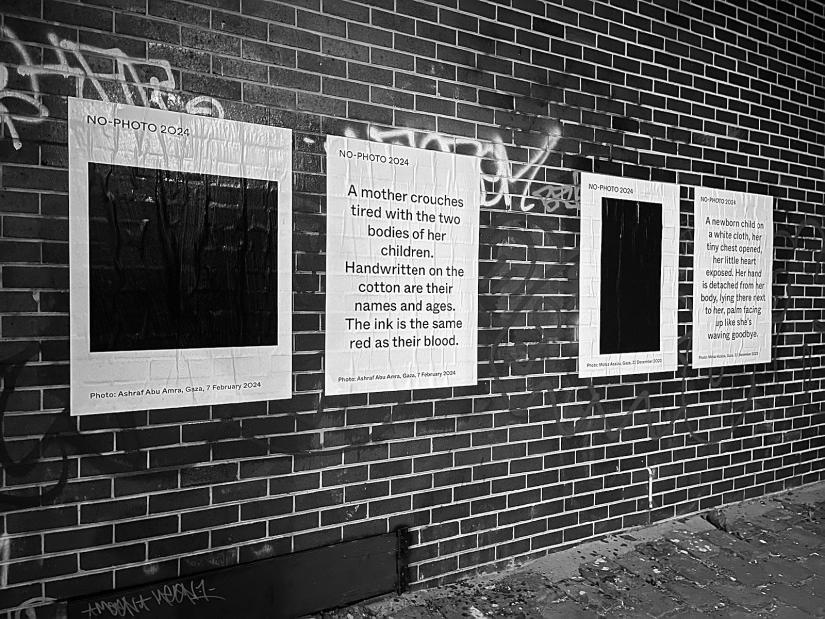 NO-PHOTO 2024
Photo: Ashraf Abu Amra, Gaza, 7 February 2024
NO-PHOTO 2024
A mother crouches
tired with the two
bodies of her
children.
Handwritten on the
cotton are their
names and ages.
The ink is the same
red as their blood.
Photo: Ashraf Abu Amra, Gaza, 7 February 2024
NO-PHOTO 2024
Gaza, 22 December 2023
NO-PHOTO 2024
A newborn child on
a white cloth, her
tiny chest opened,
her little heart
exposed. Her hand
is detached from her
body, lying there next
to her, palm facing
up like she's
waving goodbye.